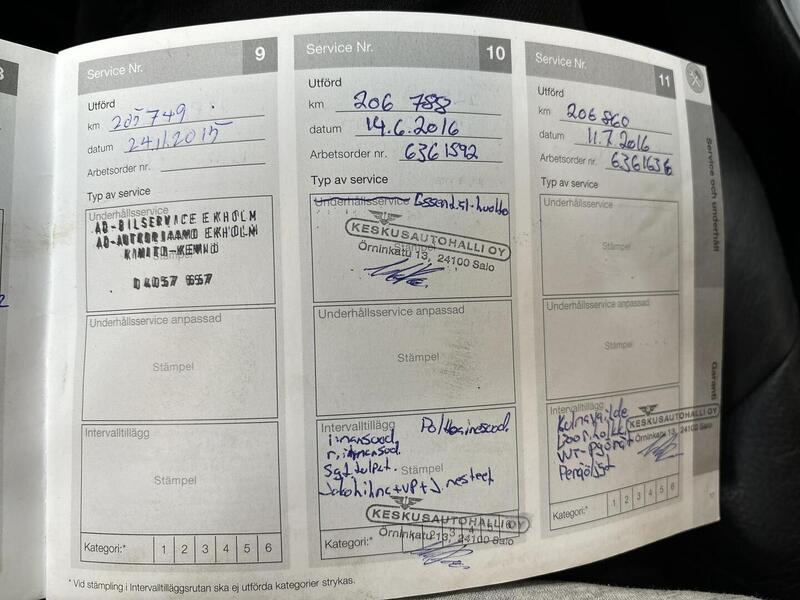 8
Service Nr. 9
Utförd
km 205749
datum 24.11.2015
Arbetsorder nr.
Typ av service
Underhållsservice
AD-BILSERVICE EKHOLM
AD-AUTOKORJAAMO EKHOLM
KIMITO-KEMIÖ
Stämpel
04057 657
Underhållsservice anpassad
Stämpel
Intervalltillägg
Stämpel
Kategori:* 1 2 3 4 5 6
* Vid stämpling i Intervalltilläggsrutan ska ej utförda kategorier strykas.
Service Nr. 10
Utförd
km 206 788
datum 14.6.2016
Arbetsorder nr. 6361592
Typ av service
Underhållsservice Essential-huolto
KESKUSAUTOHALLI OY
Stämpel
Örninkatu 13, 24100 Salo
Underhållsservice anpassad
Stämpel
Intervalltillägg Polttoainesuod.
ilmansuod.
r.ilmansuod.
Syt.tulpat. Stämpel
Jakohihna+VP+J.nesteet
KESKUSAUTOHALLI OY
Örninkatu 13, 24100 Salo
Kategori:* 1 2 3 4 5 6
Service Nr. 11
Utförd
km 206860
datum 11.7.2016
Arbetsorder nr. 6361636
Typ av service
Underhållsservice
Stämpel
Underhållsservice anpassad
Stämpel
Intervalltillägg
KESKUSAUTOHALLI OY
Örninkatu 13, 24100 Salo
Kategori:* 1 2 3 4 5 6
Service och underhåll
Garanti